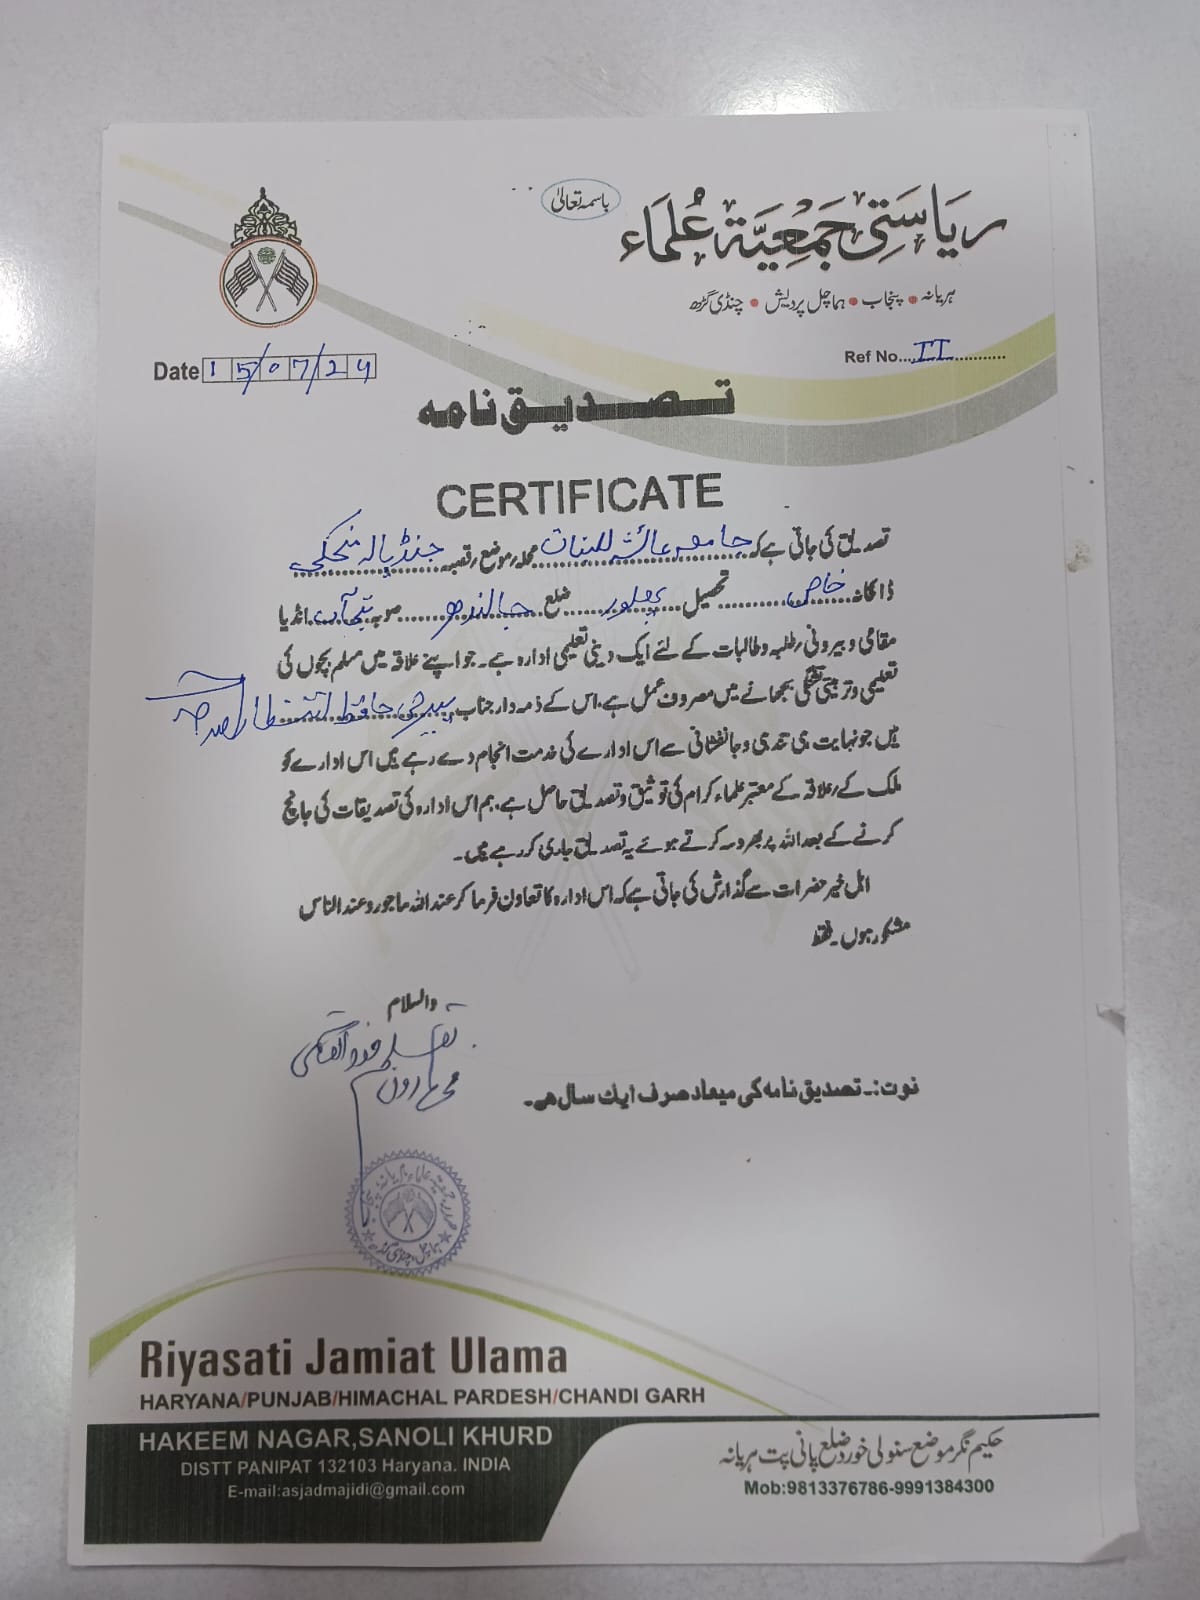 باسمہ تعالیٰ
ریاستی جمعیۃ علماء
ہریانہ • پنجاب • ہماچل پردیش • چنڈی گڑھ
Date 15/07/24
Ref No....II............
تصدیق نامہ
CERTIFICATE
تصدیق کی جاتی ہے کہ جامعہ عائشہ للبنات محلہ/موضع/قصبہ جنڈیالہ منجکی
ڈاکخانہ خاص تحصیل پھلور ضلع جالندھر صوبہ پنجاب انڈیا
مقامی و بیرونی/طلبہ و طالبات کے لئے ایک دینی تعلیمی ادارہ ہے۔ جو اپنے علاقہ میں مسلم بچوں کی
تعلیمی و تربیتی تشنگی بجھانے میں مصروف عمل ہے، اس کے ذمہ دار جناب حافظ انتظار احمد صاحب
ہیں جو نہایت ہی تندہی و جانفشانی سے اس ادارے کی خدمت انجام دے رہے ہیں اس ادارے کو
ملک کے/علاقہ کے معتبر علماء کرام کی توثیق و تصدیق حاصل ہے، ہم اس ادارہ کی تصدیقات کی جانچ
کرنے کے بعد اللہ پر بھروسہ کرتے ہوئے یہ تصدیق جاری کر رہے ہیں۔
اہل خیر حضرات سے گذارش کی جاتی ہے کہ اس ادارہ کا تعاون فرما کر عند اللہ ماجور و عند الناس
مشکور ہوں۔ فقط
والسلام
محمد ہارون
نوٹ:۔ تصدیق نامہ کی میعاد صرف ایک سال ہے۔
صدر جمعیۃ علماء ہریانہ پنجاب
ہماچل، چنڈی گڑھ
Riyasati Jamiat Ulama
HARYANA/PUNJAB/HIMACHAL PARDESH/CHANDI GARH
HAKEEM NAGAR,SANOLI KHURD
DISTT PANIPAT 132103 Haryana. INDIA
E-mail:asjadmajidi@gmail.com
حکیم نگر موضع سنولی خورد ضلع پانی پت ہریانہ
Mob:9813376786-9991384300